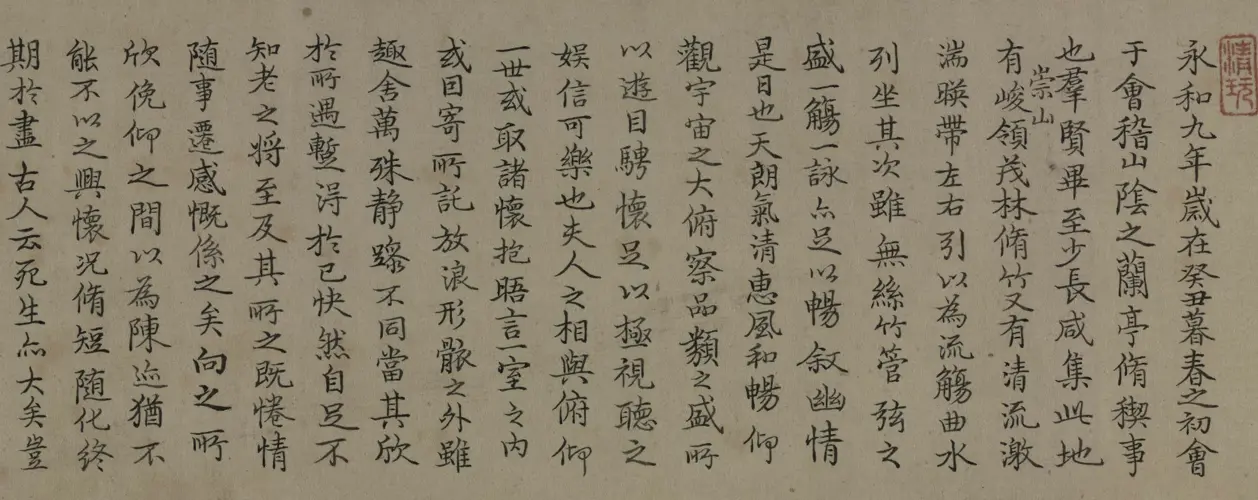 清玩
永和九年歲在癸丑暮春之初會
于會稽山陰之蘭亭脩稧事
也羣賢畢至少長咸集此地
崇山
有峻領茂林脩竹又有清流激
湍暎帶左右引以為流觴曲水
列坐其次雖無絲竹管弦之
盛一觴一詠亦足以暢叙幽情
是日也天朗氣清惠風和暢仰
觀宇宙之大俯察品類之盛所
以遊目騁懷足以極視聽之
娛信可樂也夫人之相與俯仰
一世或取諸懷抱晤言一室之内
或因寄所託放浪形骸之外雖
趣舍萬殊静躁不同當其欣
於所遇蹔得於己快然自足不
知老之將至及其所之既惓情
随事遷感慨係之矣向之所
欣俛仰之間以為陳迹猶不
能不以之興懷況脩短随化終
期於盡古人云死生亦大矣豈